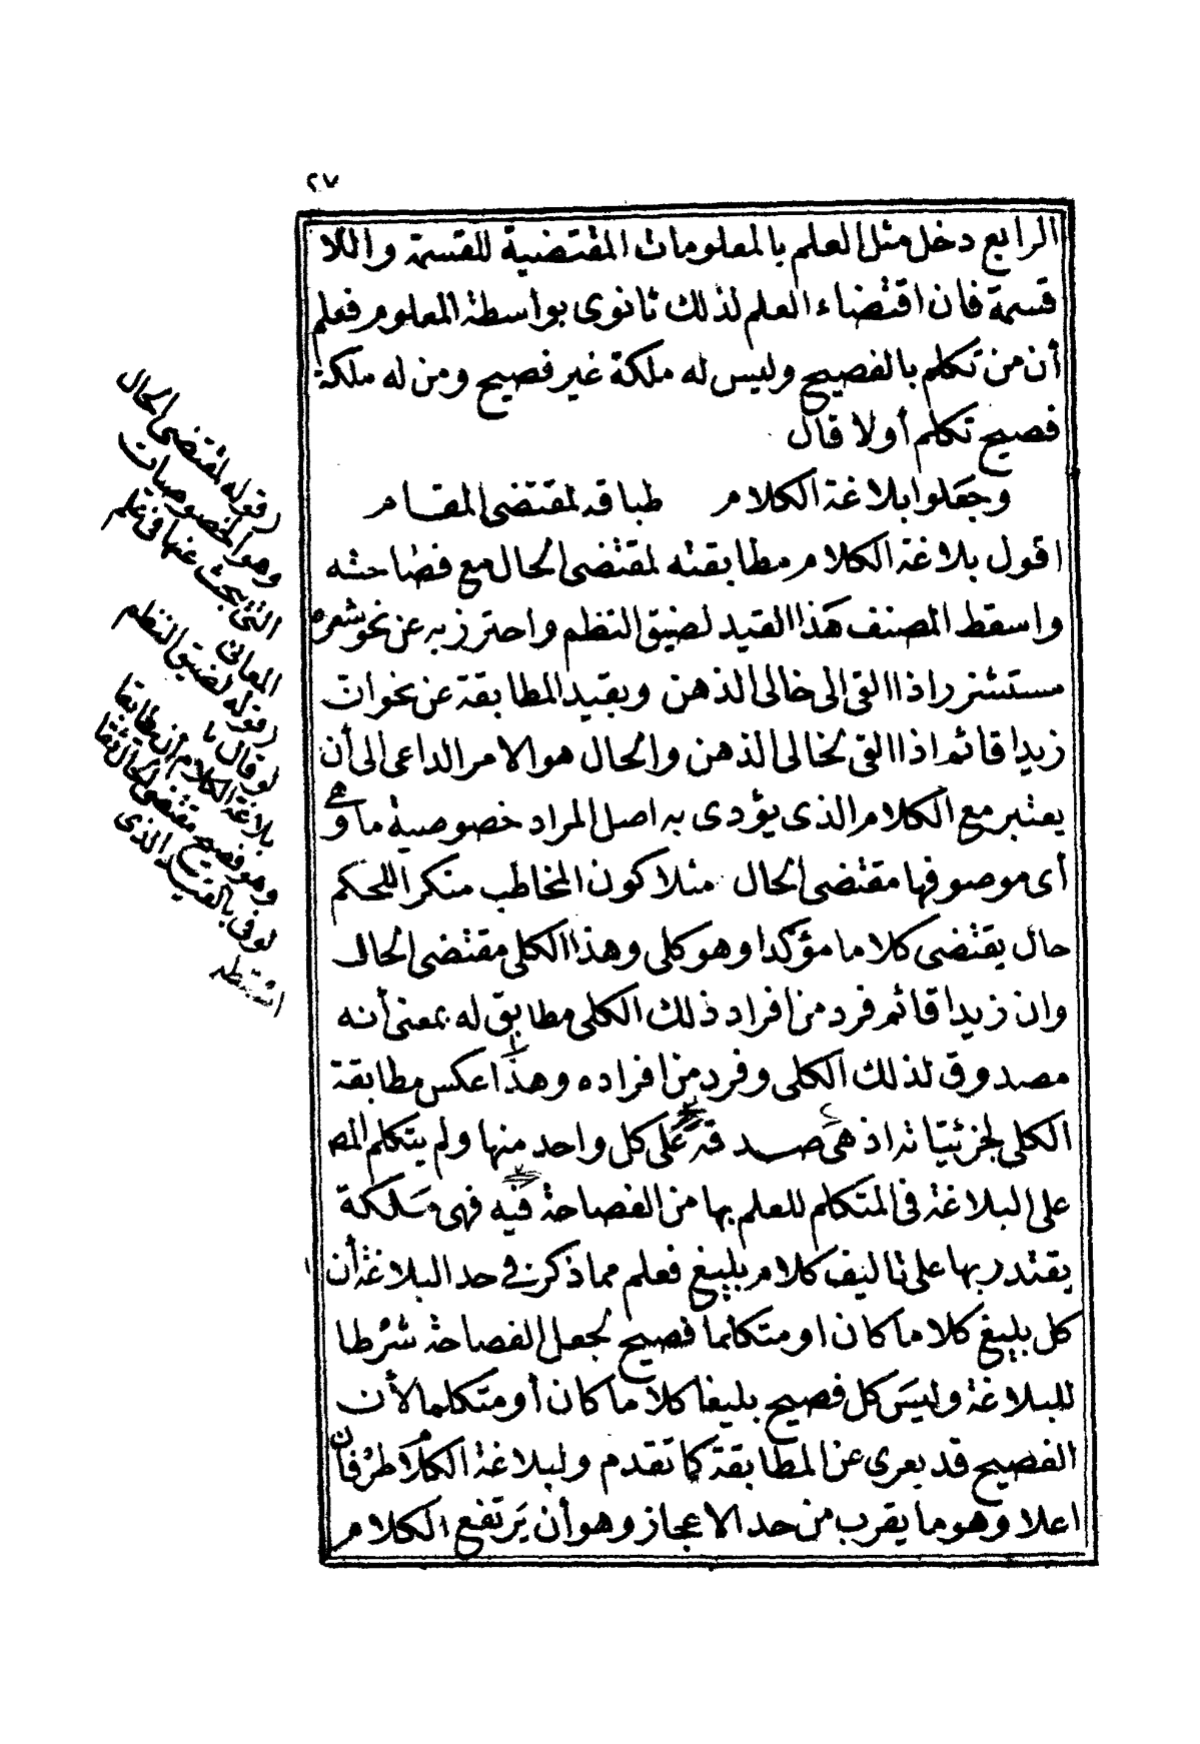 ٢٧
الرابع دخل مثل العلم بالمعلومات المقتضية للقسمة واللا
قسمة فان اقتضاء العلم لذلك ثانوى بواسطة المعلوم فعلم
أن من تكلم بالفصيح وليس له ملكة غير فصيح ومن له ملكة
فصيح تكلم أولا قال
وجعلوا بلاغة الكلام طباقه لمقتضى المقام
اقول بلاغة الكلام مطابقته لمقتضى الحال مع فصاحته
واسقط المصنف هذا القيد لضيق النظم واحترز به عن نحو شعره
مستشزر اذا القى الى خالى الذهن وبقيد المطابقة عن نحو ان
زيدا قائم اذا القى لخالى الذهن والحال هو الامر الداعى الى أن
يعتبر مع الكلام الذى يؤدى به اصل المراد خصوصية ما وهى
أى موصوفها مقتضى الحال مثلا كون المخاطب منكرا للحكم
حال يقتضى كلاما مؤكدا وهو كلى وهذا الكلى مقتضى الحال
وان زيدا قائم فرد من افراد ذلك الكلى مطابق له بمعنى أنه
مصدوق لذلك الكلى وفرد من افراده وهذا عكس مطابقة
الكلى لجزئياته اذ هى صدقه على كل واحد منها ولم يتكلم المص
على البلاغة فى المتكلم للعلم بها من الفصاحة فيه فهى ملكة
يقتدر بها على تاليف كلام بليغ فعلم مما ذكر فى حد البلاغة أن
كل بليغ كلاما كان او متكلما فصيح لجعل الفصاحة شرطا
للبلاغة وليس كل فصيح بليغا كلاما كان أو متكلما لأن
الفصيح قد يعرى عن المطابقة كما تقدم ولبلاغة الكلام طرفان
اعلا وهو ما يقرب من حد الاعجاز وهو أن يرتفع الكلام
(قوله لمقتضى الحال
وهو الخصوصيات
التى يبحث عنها فى علم
المعانى
(قوله لضيق النظم
لو قال
بلاغة الكلام أن يطابقا
وهو فصيح مقتضى الحال ثقا
لوفى بالقيد الذى
اسقطه